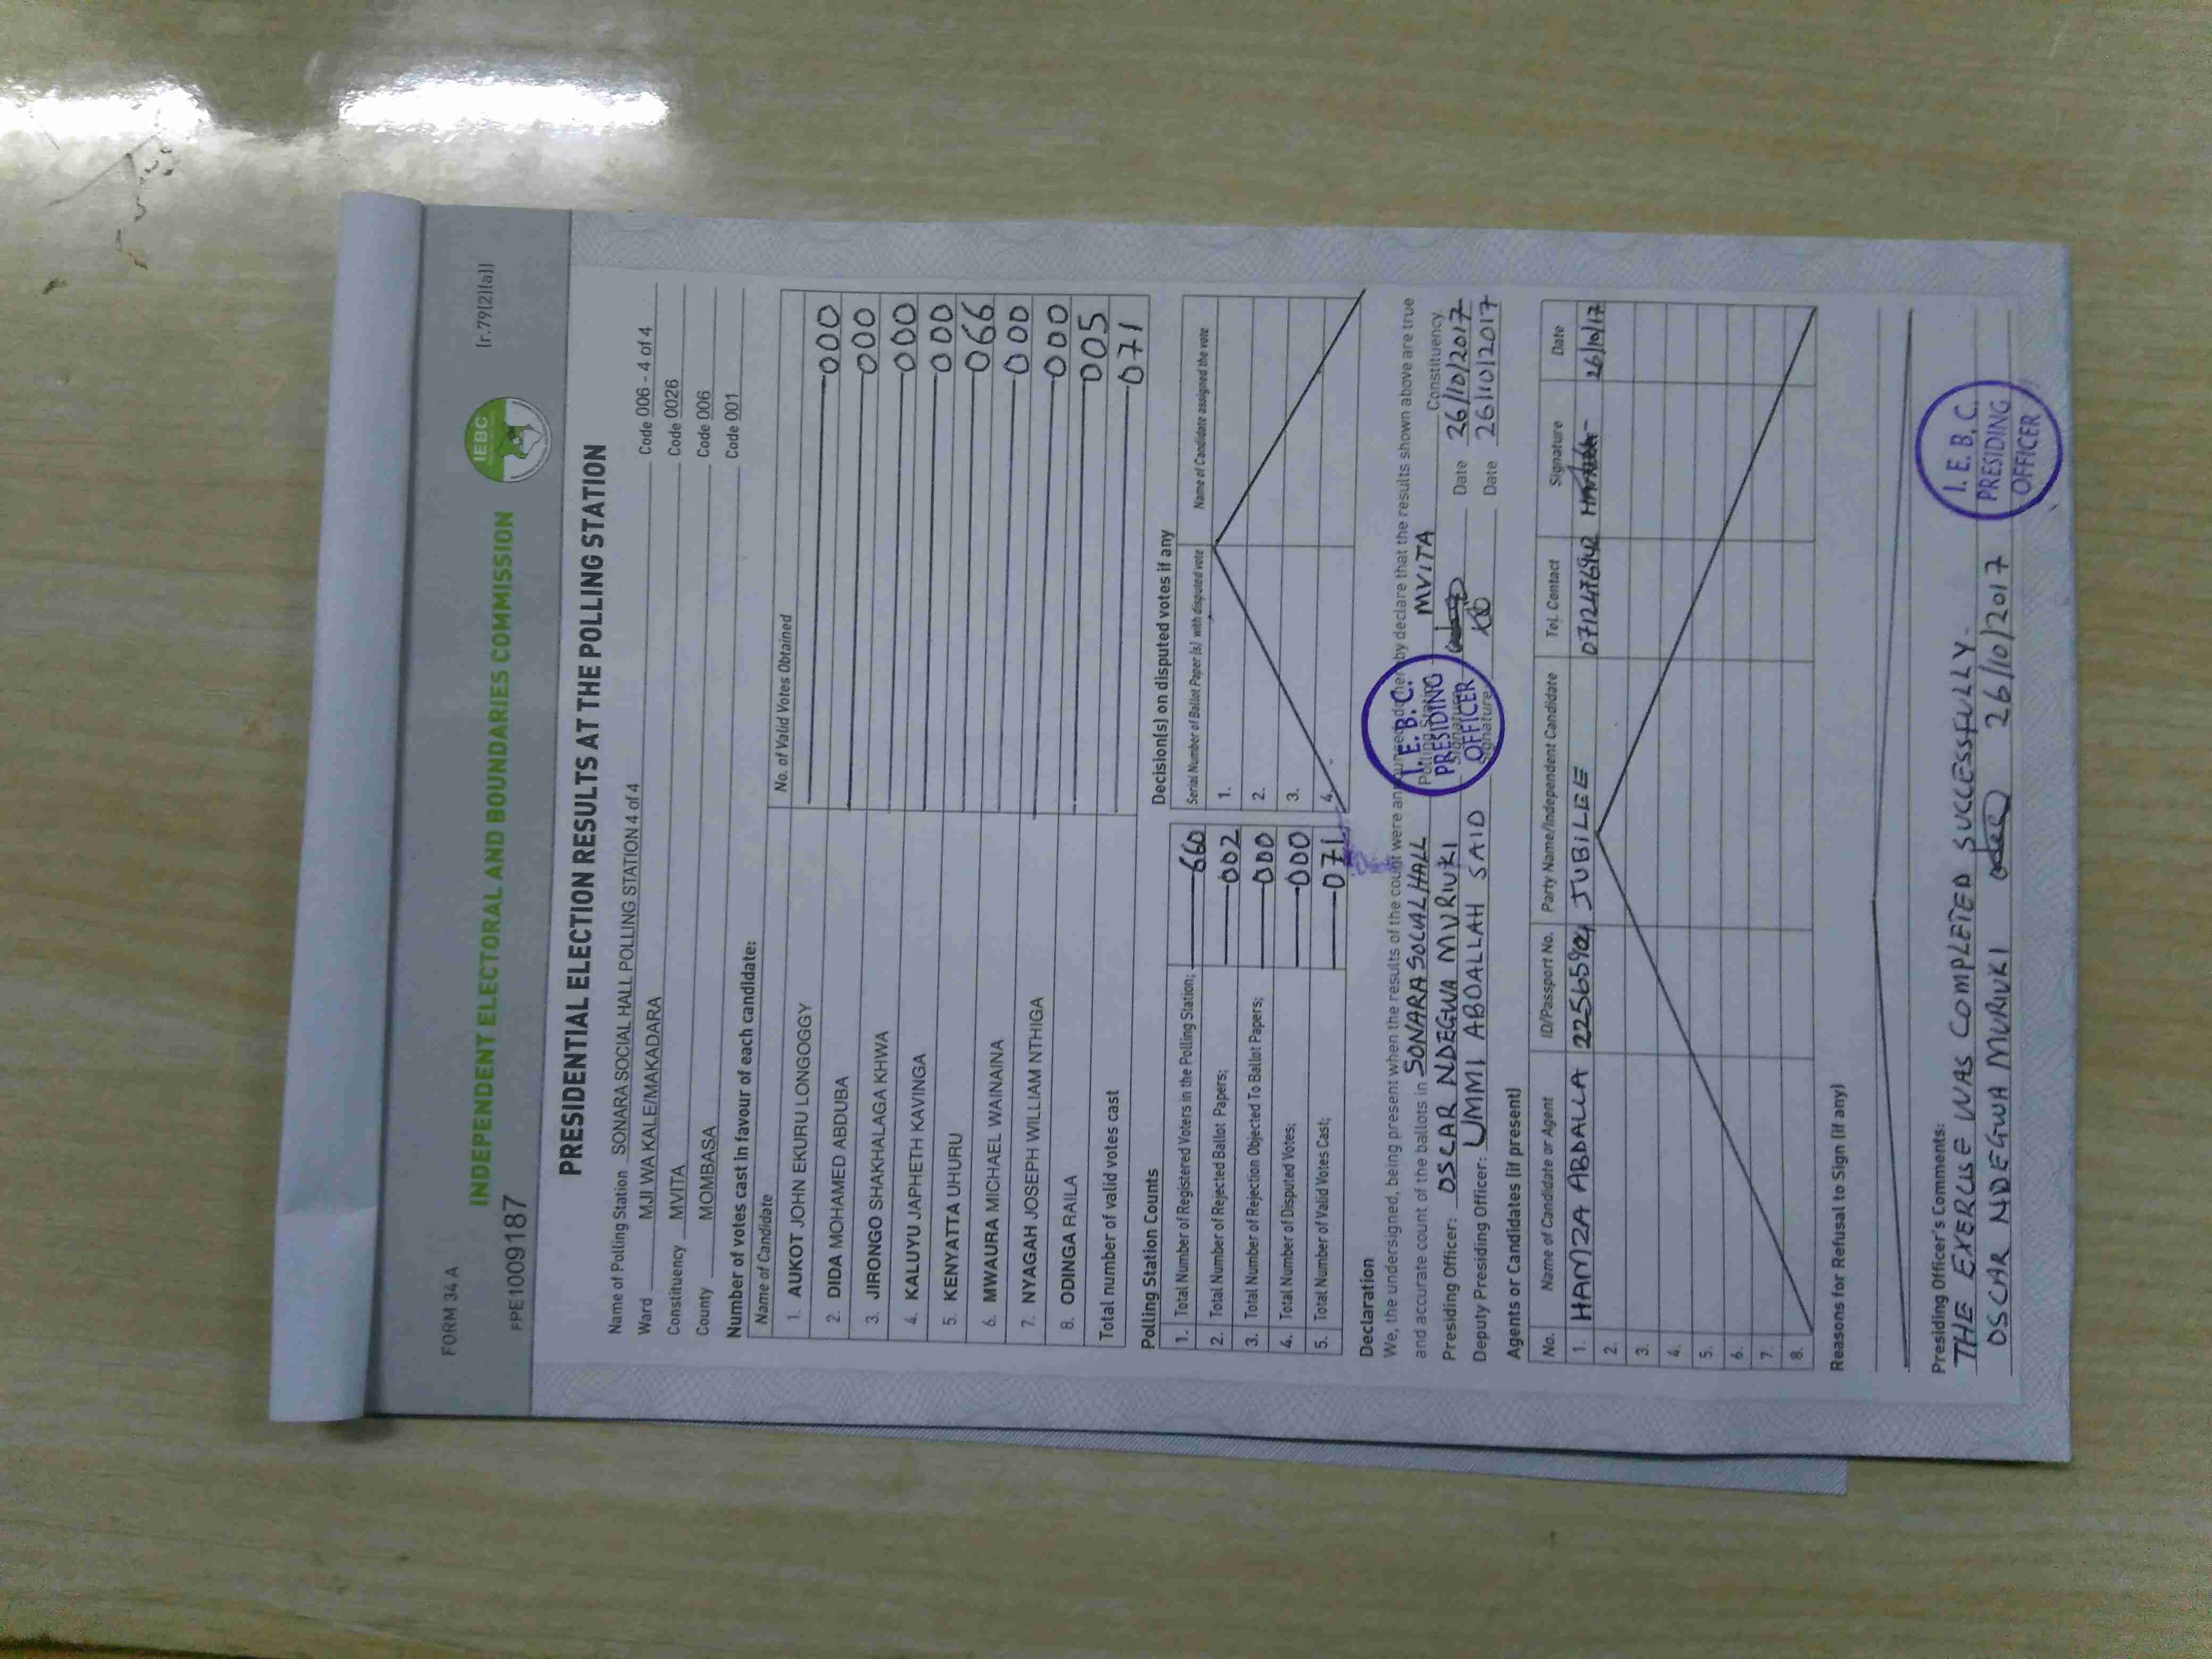 FORM 34 A
(r.79(2)(a))
INDEPENDENT ELECTORAL AND BOUNDARIES COMMISSION
IEBC
FPE1009187
PRESIDENTIAL ELECTION RESULTS AT THE POLLING STATION
Name of Polling Station SONARA SOCIAL HALL POLLING STATION 4 of 4 Code 006 - 4 of 4
Ward MJI WA KALE/MAKADARA Code 0026
Constituency MVITA Code 006
County MOMBASA Code 001
Number of votes cast in favour of each candidate:
Name of Candidate No. of Valid Votes Obtained
1. AUKOT JOHN EKURU LONGOGGY 000
2. DIDA MOHAMED ABDUBA 000
3. JIRONGO SHAKHALAGA KHWA 000
4. KALUYU JAPHETH KAVINGA 000
5. KENYATTA UHURU 066
6. MWAURA MICHAEL WAINAINA 000
7. NYAGAH JOSEPH WILLIAM NTHIGA 000
8. ODINGA RAILA 005
Total number of valid votes cast 071
Polling Station Counts
1. Total Number of Registered Voters in the Polling Station; 660
2. Total Number of Rejected Ballot Papers; 002
3. Total Number of Rejection Objected To Ballot Papers; 000
4. Total Number of Disputed Votes; 000
5. Total Number of Valid Votes Cast; 071
Decision(s) on disputed votes if any
Serial Number of Ballot Paper (s) with disputed vote Name of Candidate assigned the vote
1.
2.
3.
4.
Declaration
We, the undersigned, being present when the results of the count were announced, hereby declare that the results shown above are true
and accurate count of the ballots in SONARA SOCIAL HALL Polling Station MVITA Constituency
Presiding Officer: OSCAR NDEGWA MURIUKI Signature Date 26/10/2017
Deputy Presiding Officer: UMMI ABDALLAH SAID Signature Date 26/10/2017
I. E. B. C.
PRESIDING
OFFICER
Agents or Candidates (if present)
No. Name of Candidate or Agent ID/Passport No. Party Name/Independent Candidate Tel. Contact Signature Date
1. HAMZA ABDALLA 22565904 JUBILEE 26/10/17
2.
3.
4.
5.
6.
7.
8.
Reasons for Refusal to Sign (if any)
Presiding Officer's Comments:
THE EXERCISE WAS COMPLETED SUCCESSFULLY.
OSCAR NDEGWA MURIUKI 26/10/2017
I. E. B. C.
PRESIDING
OFFICER